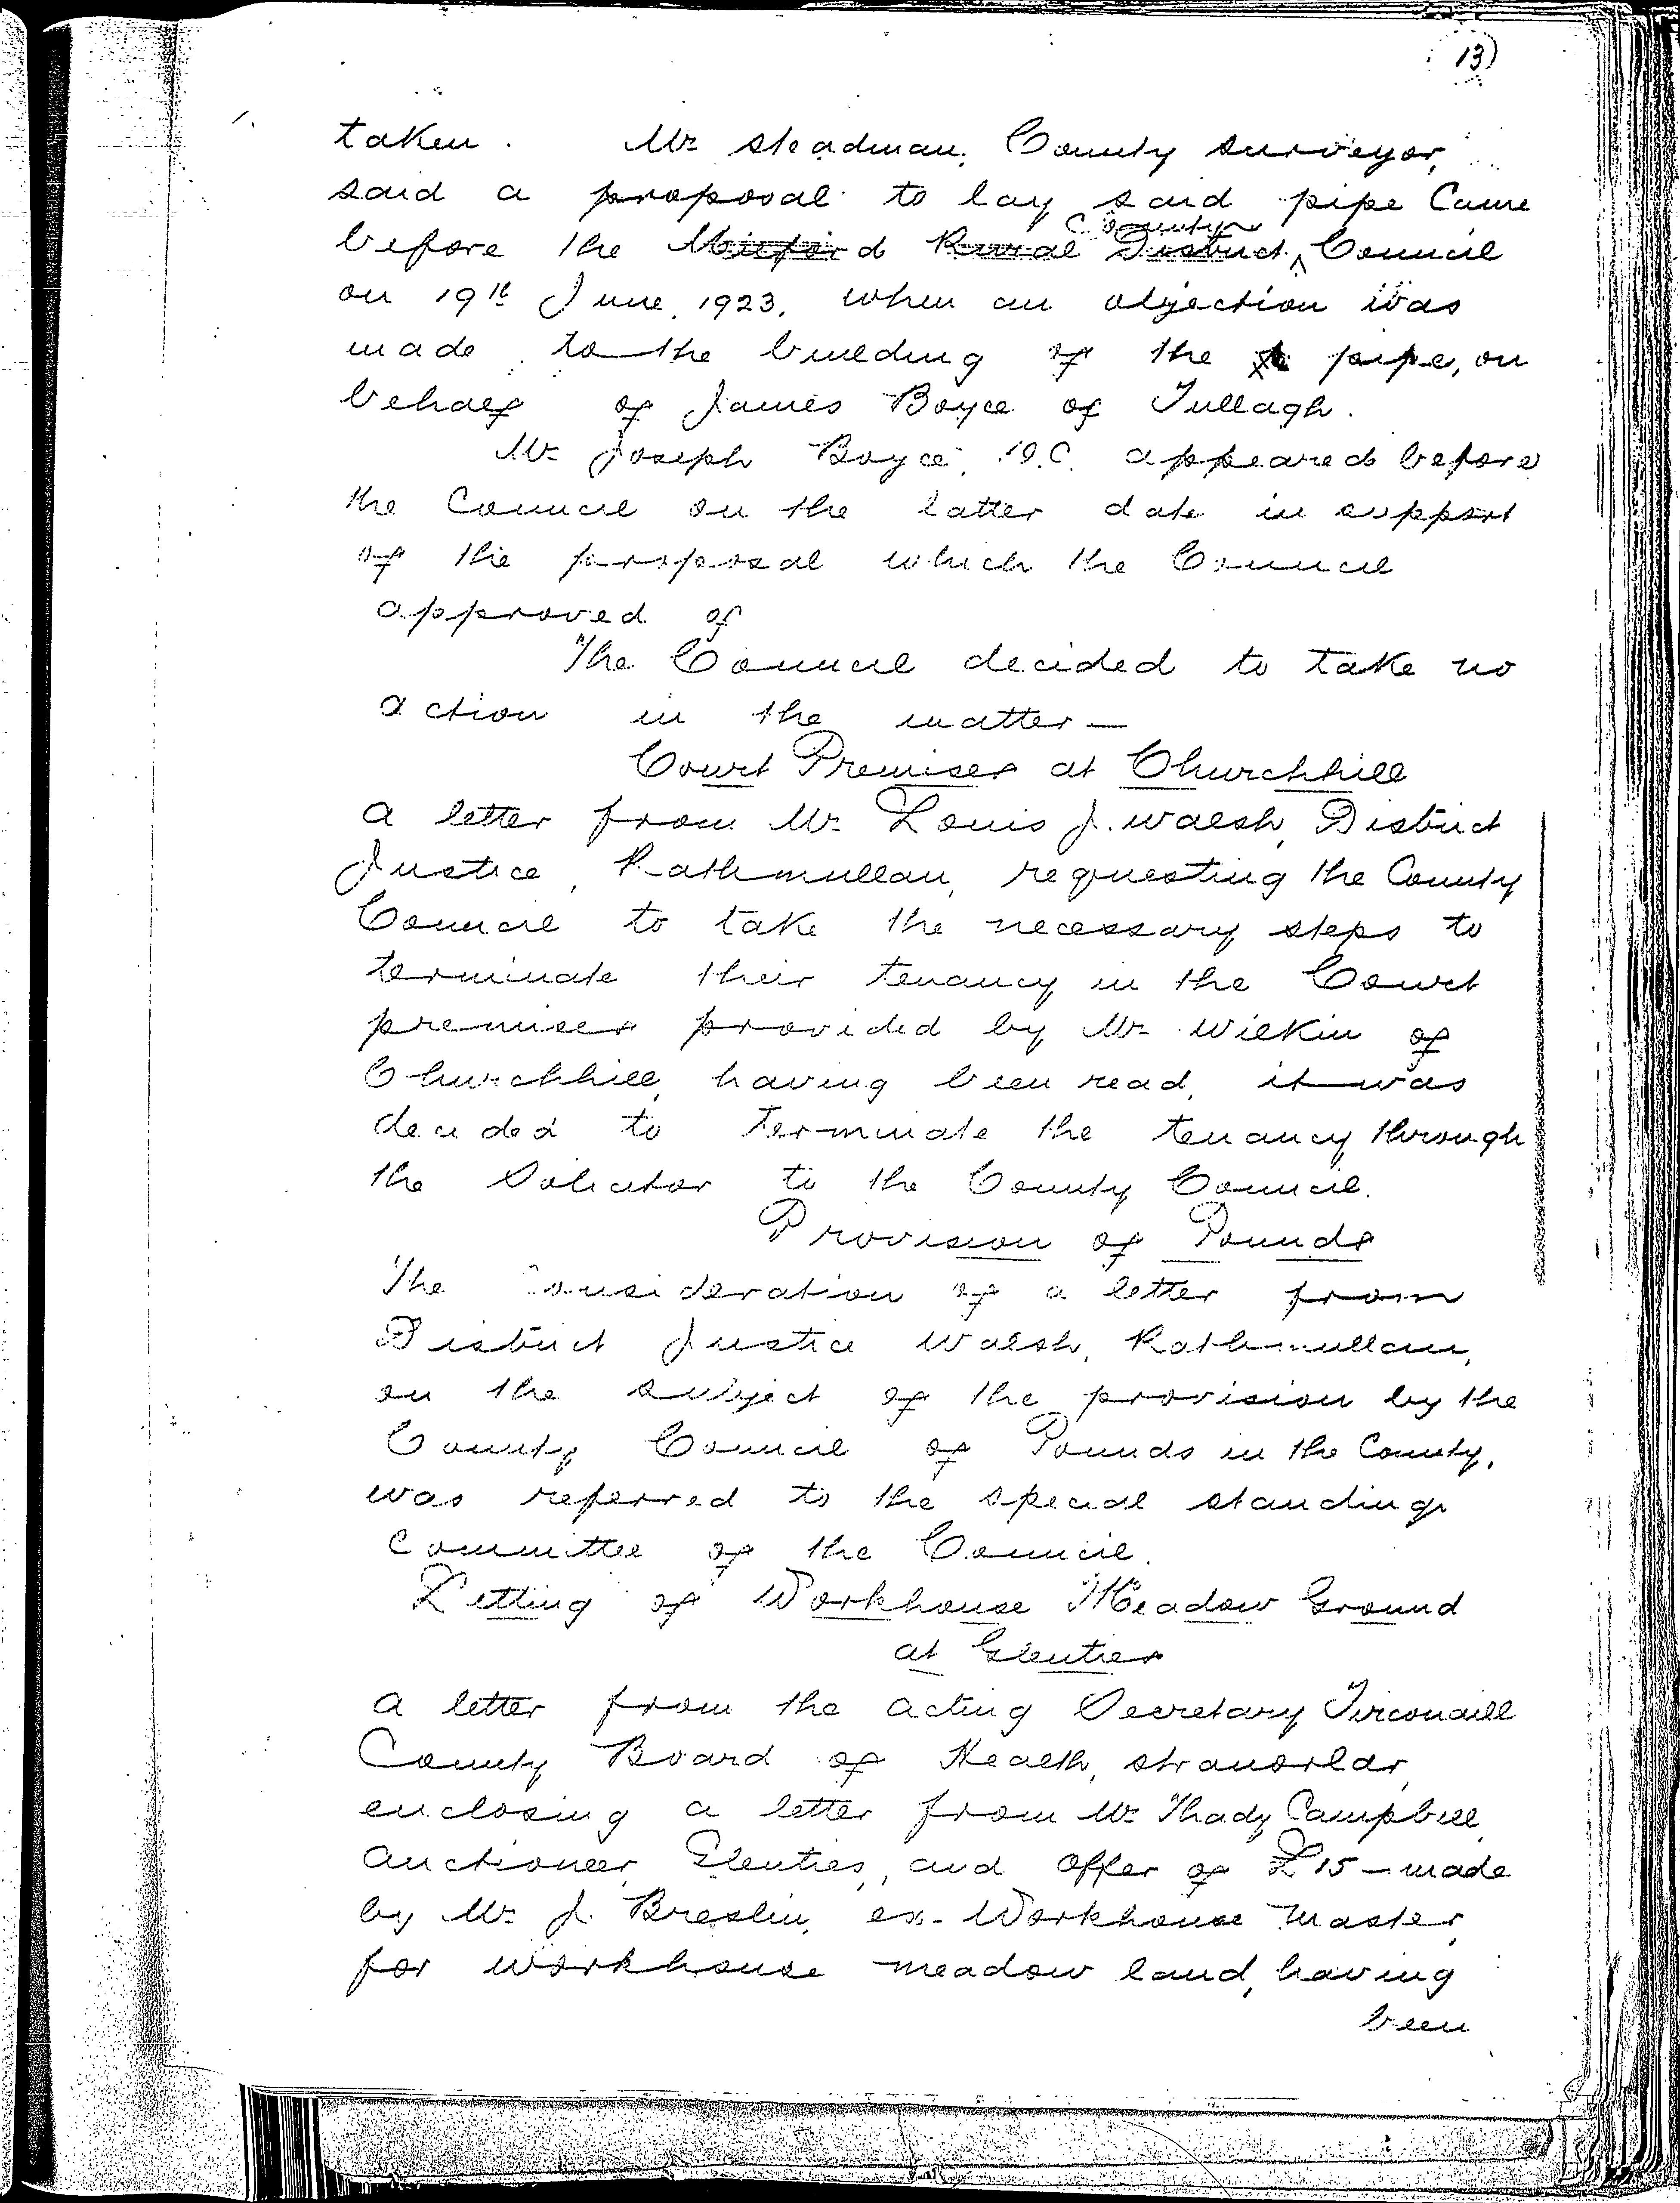 13)
taken. Mr Steadman, County Surveyor,
said a proposal to lay said pipe Came
County
before the Milford Rural District Council
on 19th June, 1923, when an objection was
made to the building of the pipe, on
behalf of James Boyce of Tullagh.
Mr Joseph Boyce, D.C. appeared before
the Council on the latter date in support
of the proposal which the Council
approved of
The Council decided to take no
action in the matter —
Court Premises at Churchhill
A letter from Mr Louis J. Walsh, District
Justice, Rathmullan, requesting the County
Council to take the necessary steps to
terminate their tenancy in the Court
premises provided by Mr Wilkin of
Churchhill, having been read, it was
decided to Terminate the tenancy through
the Solicitor to the County Council.
Provision of Pounds
The Consideration of a letter from
District Justice Walsh, Rathmullan,
on the subject of the provision by the
County Council of Pounds in the County,
was referred to the special standing
Committee of the Council.
Letting of Workhouse Meadow Ground
at Glenties
A letter from the Acting Secretary Tirconaill
County Board of Health, Stranorlar,
enclosing a letter from Mr Thady Campbell,
Auctioneer, Glenties, and offer of £15 — made
by Mr J. Breslin, ex-Workhouse Master,
for workhouse meadow land, having
been